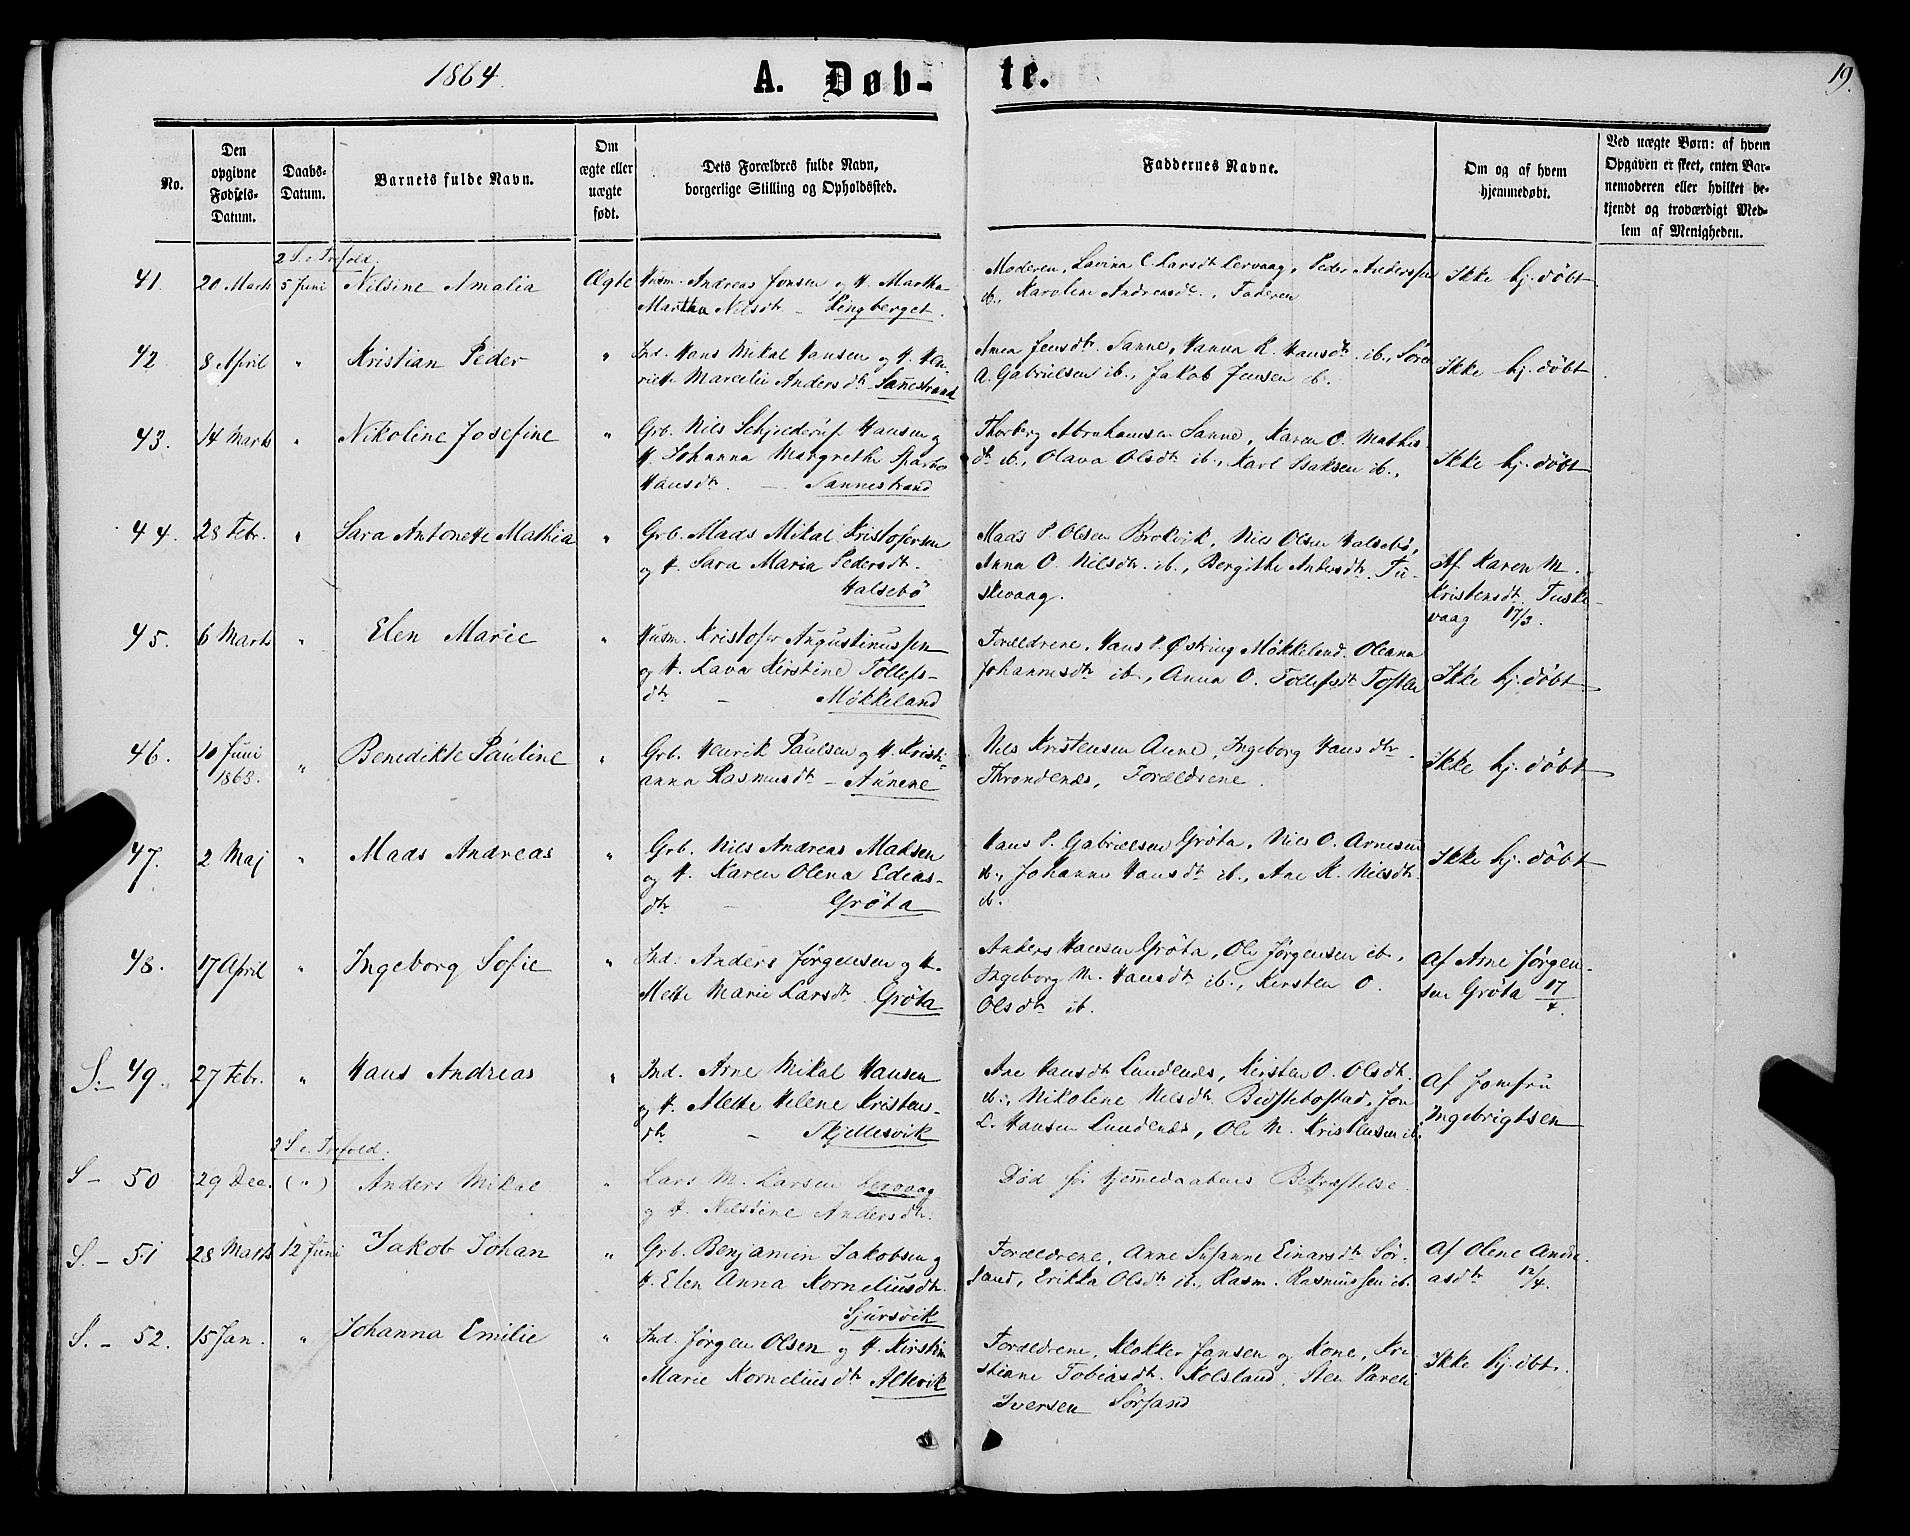 1864. A. Døb- te. 19.
No.
Den opgivne Fødsels-Datum.
Daabs-Datum.
Barnets fulde Navn.
Om ægte eller uægte født.
Dets Forældres fulde Navn,
borgerlige Stilling og Opholdssted.
Faddernes Navne.
Om og af hvem
hjemmedøbt.
Ved uægte Børn: af hvem
Opgaven er skeet, enten Bar-
nemoderen eller hvilket be-
kjendt og troværdigt Med-
lem af Menigheden.
2 S. e. Trefold.
41. 20 Marts 5 Juni Nilsine Amalia Ægte Husm. Andreas Jonsen og H. Martha
Martha Nilsdtr. – Lingberget.
Moderen, Lavina C. Larsdtr Lervaag, Peder Anderssen
ib., Karoline Andreasdtr., Faderen
Ikke hj. døbt
42 8 April " Kristian Peder " Ind. Hans Mikal Hansen og H. Hen-
riett. Marcelie Andersdtr. Sannestrand
Anea Jensdtr. Sanne, Hanna R. Hansdtr. ib., Søren
A. Gabrielsen ib., Jakob Jensen ib.
Ikke hj. døbt
43. 14 Marts " Nikoline Josefine " Grb. Nils Schjelderuf Hansen og
H. Johanna Margrethe Sparbo
Hansdtr. – Sannestrand
Thorberg Abrahamsen Sanne, Karen O. Mathis-
dtr ib., Olava Olsdtr ib., Karl Isaksen ib.,
Ikke hj. døbt
44. 28 Febr. " Sara Antonette Mathia " Grb. Mads Mikal Kristofersen
og H. Sara Maria Pedersdtr.
Halsebö
Mads P Olsen Brokvik, Nils Olsen Halsebö,
Anna O. Nilsdtr. ib., Bergithe Andersdtr. Tu-
skevaag.
Af Karen M.
Kristensdtr. Tuske-
vaag 17/3.
45. 6 Marts " Elen Marie " Husm. Kristofer Augustinussen
og H. Lava Kirstine Tollefs-
dtr – Møkkeland
Forældrene, Hans P. Østring Møkkeland, Oleana
Johannesdtr ib., Anna O. Tollefsdtr
Ikke hj. døbt
46. 10 Juni
1863. " Benedikte Pauline " Grb. Henrik Paulsen og H. Kristi-
anna Rasmusdtr – Aunene
Nils Kristensen Aune, Ingeborg Hansdtr
Throndenæs, Forældrene.
Ikke hj. døbt
47. 2 Maj " Mads Andreas " Grb. Nils Andreas Maksen
og H. Karen Olena Edias-
dtr – Grøta
Hans P. Gabrielsen Grøta, Nils O. Arnesen
ib., Johanne Hansdtr ib., Ane K. Nilsdtr.
ib.
Ikke hj. døbt
48. 17 April " Ingeborg Sofie " Ind. Anders Jørgensen og H.
Mette Marie Larsdtr. Grøta
Anders Hansen Grøta, Ole Jørgensen ib.,
Ingeborg M. Hansdtr ib., Kersten O.
Olsdtr ib.
Af Arne Jørgen-
sen Grøta 17/4.
S. – 49. 27 Febr. " Hans Andreas " Ind. Arne Mikal Hansen
og H. Mette Helene Kristens-
dtr – Skjellesvik
Ane Hansdtr Lundenæs, Kersten O. Olsdtr.
ib., Nikolene Nilsdtr. Breistebostad, Jon
L. Hansen Lundenæs, Ole M. Kristensen ib.
Af Jomfru
Ingebrigtsen
2 S. e. Trefold.
S – 50 29 Dec. (") Anders Mikal " Lars M. Larsen Lervaag
og H. Nilsine Andersdtr.
Død før Hjemmedaabens Bekræftelse.
S. – 51 28 Marts 12 Juni Jakob Johan " Grb. Benjamin Jakobsen og
H. Elen Anna Korneliusdtr.
Sjursvik
Forældrene, Anne Susanne Einarsdtr Sør-
sand, Erikka Olsdtr ib., Rasm. Rasmussen ib.
Af Olene Andre-
asdtr 12/4.
S. – 52. 15 Jan. " Johanna Emilie " Ind. Jørgen Olsen og H. Kirstin
Marie Korneliusdtr Altevik
Forældrene, Klokker Jansen og Kone, Kri-
stiane Tobiasdtr. Kolsland,
Iversen Sørsand
Ikke hj. dbt.